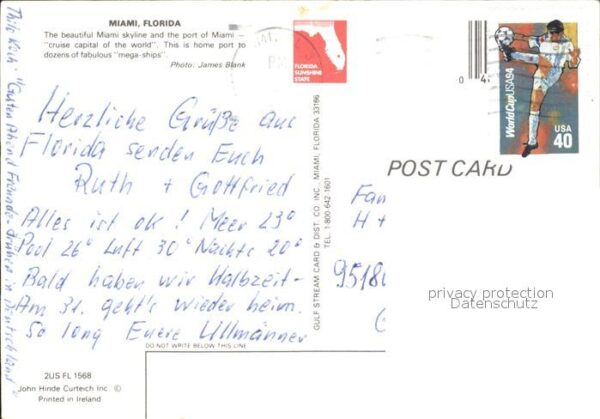 MIAMI, FLORIDA
The beautiful Miami skyline and the port of Miami –
"cruise capital of the world". This is home port to
dozens of fabulous "mega-ships".
Photo: James Blank
Herzliche Grüße aus
Florida senden Euch
Ruth + Gottfried
Alles ist ok! Meer 23°
Pool 26° Luft 30° Nachts 20°
Bald haben wir Halbzeit-
Am 31. geht's wieder heim.
So long Euere Ullmänner
"Guten Abend Freunde
in Deutschland"
DO NOT WRITE BELOW THIS LINE
2US FL 1568
John Hinde Curteich Inc. ©
Printed in Ireland
GULF STREAM CARD & DIST. CO. INC., MIAMI, FLORIDA 33166
TEL. 1-800-642-1601
FLORIDA
SUNSHINE
STATE
PM
0 4
World Cup USA 94
USA
40
POST CARD
Fam
H +
9518
privacy protection
Datenschutz